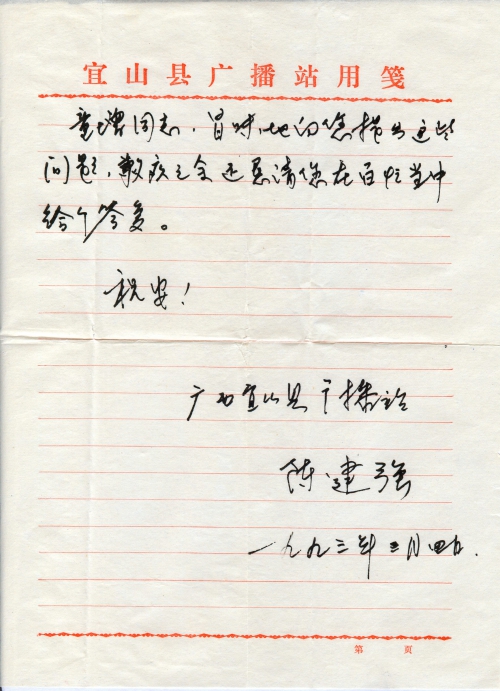 宜山县广播站用笺
同志，冒昧地向您提出这些
问题，敬疚之余还恳请您在百忙当中
给个答复。
祝安！
广西宜山县广播站
陈建强
一九九三年三月四日.
第 页